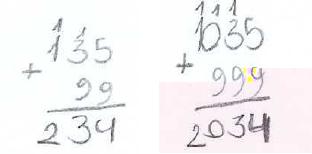 1 1
135
+
99
234
1 1 1
1035
+
999
2034